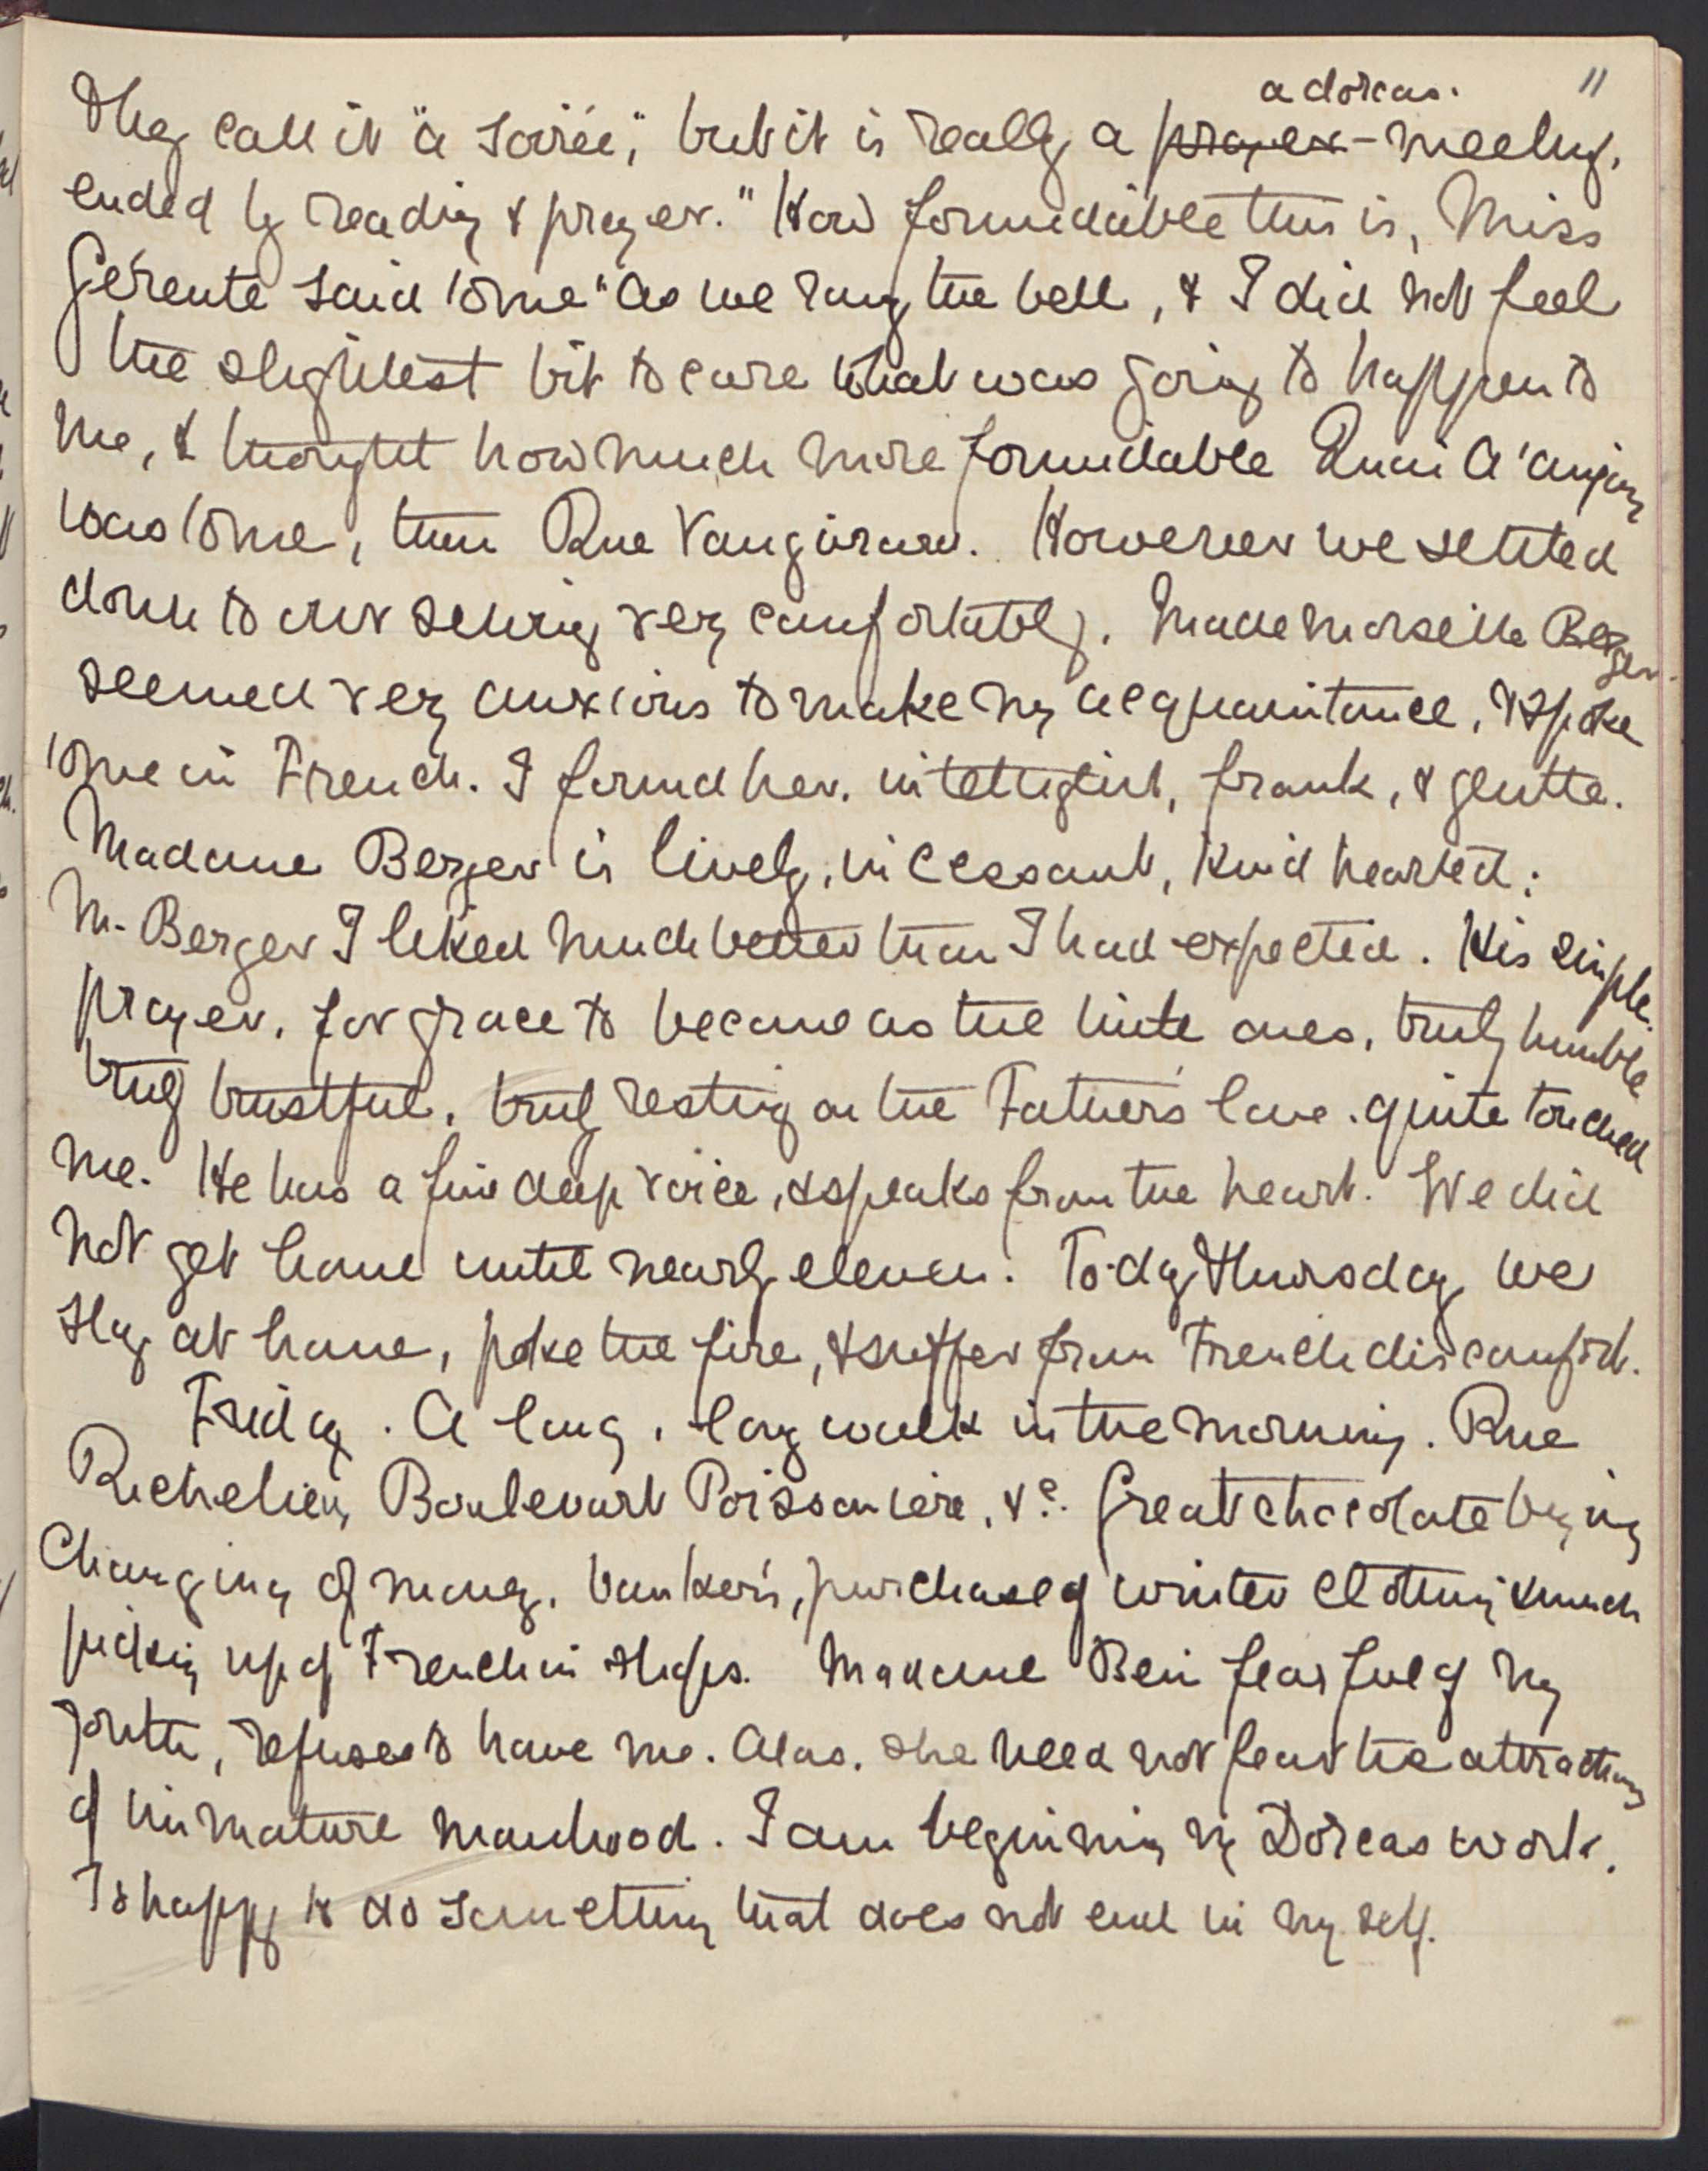 11
a dorcas.
They call it "a soirée," but it is really a prayer-meeting,
ended by reading & prayer. "How formidable this is, Miss
Gérente said to me" as we rang the bell, & I did not feel
the slightest bit to care what was going to happen to
me, & thought how much more formidable Quai d'anjou
was to me, than Rue Vaugirard. However we settled
down to our sewing very comfortably. Mademoiselle Berger
seemed very anxious to make my acquaintance, & spoke
to me in French. I found her, intelligent, frank, & gentle.
Madame Berger is lively, incessant, kind hearted;
M. Berger I liked much better than I had expected. His simple
prayer, for grace to become as the little ones, truly humble
truly trustful, truly resting on the Father's love, quite touched
me. He has a fine deep voice, & speaks from the heart. We did
not get home until nearly eleven. To-day Thursday we
stay at home, poke the fire, & suffer from French discomfort.
Friday. A long, long walk in the morning. Rue
Richelieu, Boulevart Poissonière, &c. Great chocolate buying
Changing of money, banker's, purchase of winter clothing & much
picking up of French in shops. Madame Bein fearful of my
youth, refuses to have me. Alas. she need not fear the attractions
of immature manhood. I am beginning my Dorcas work.
So happy to do something that does not end in myself.